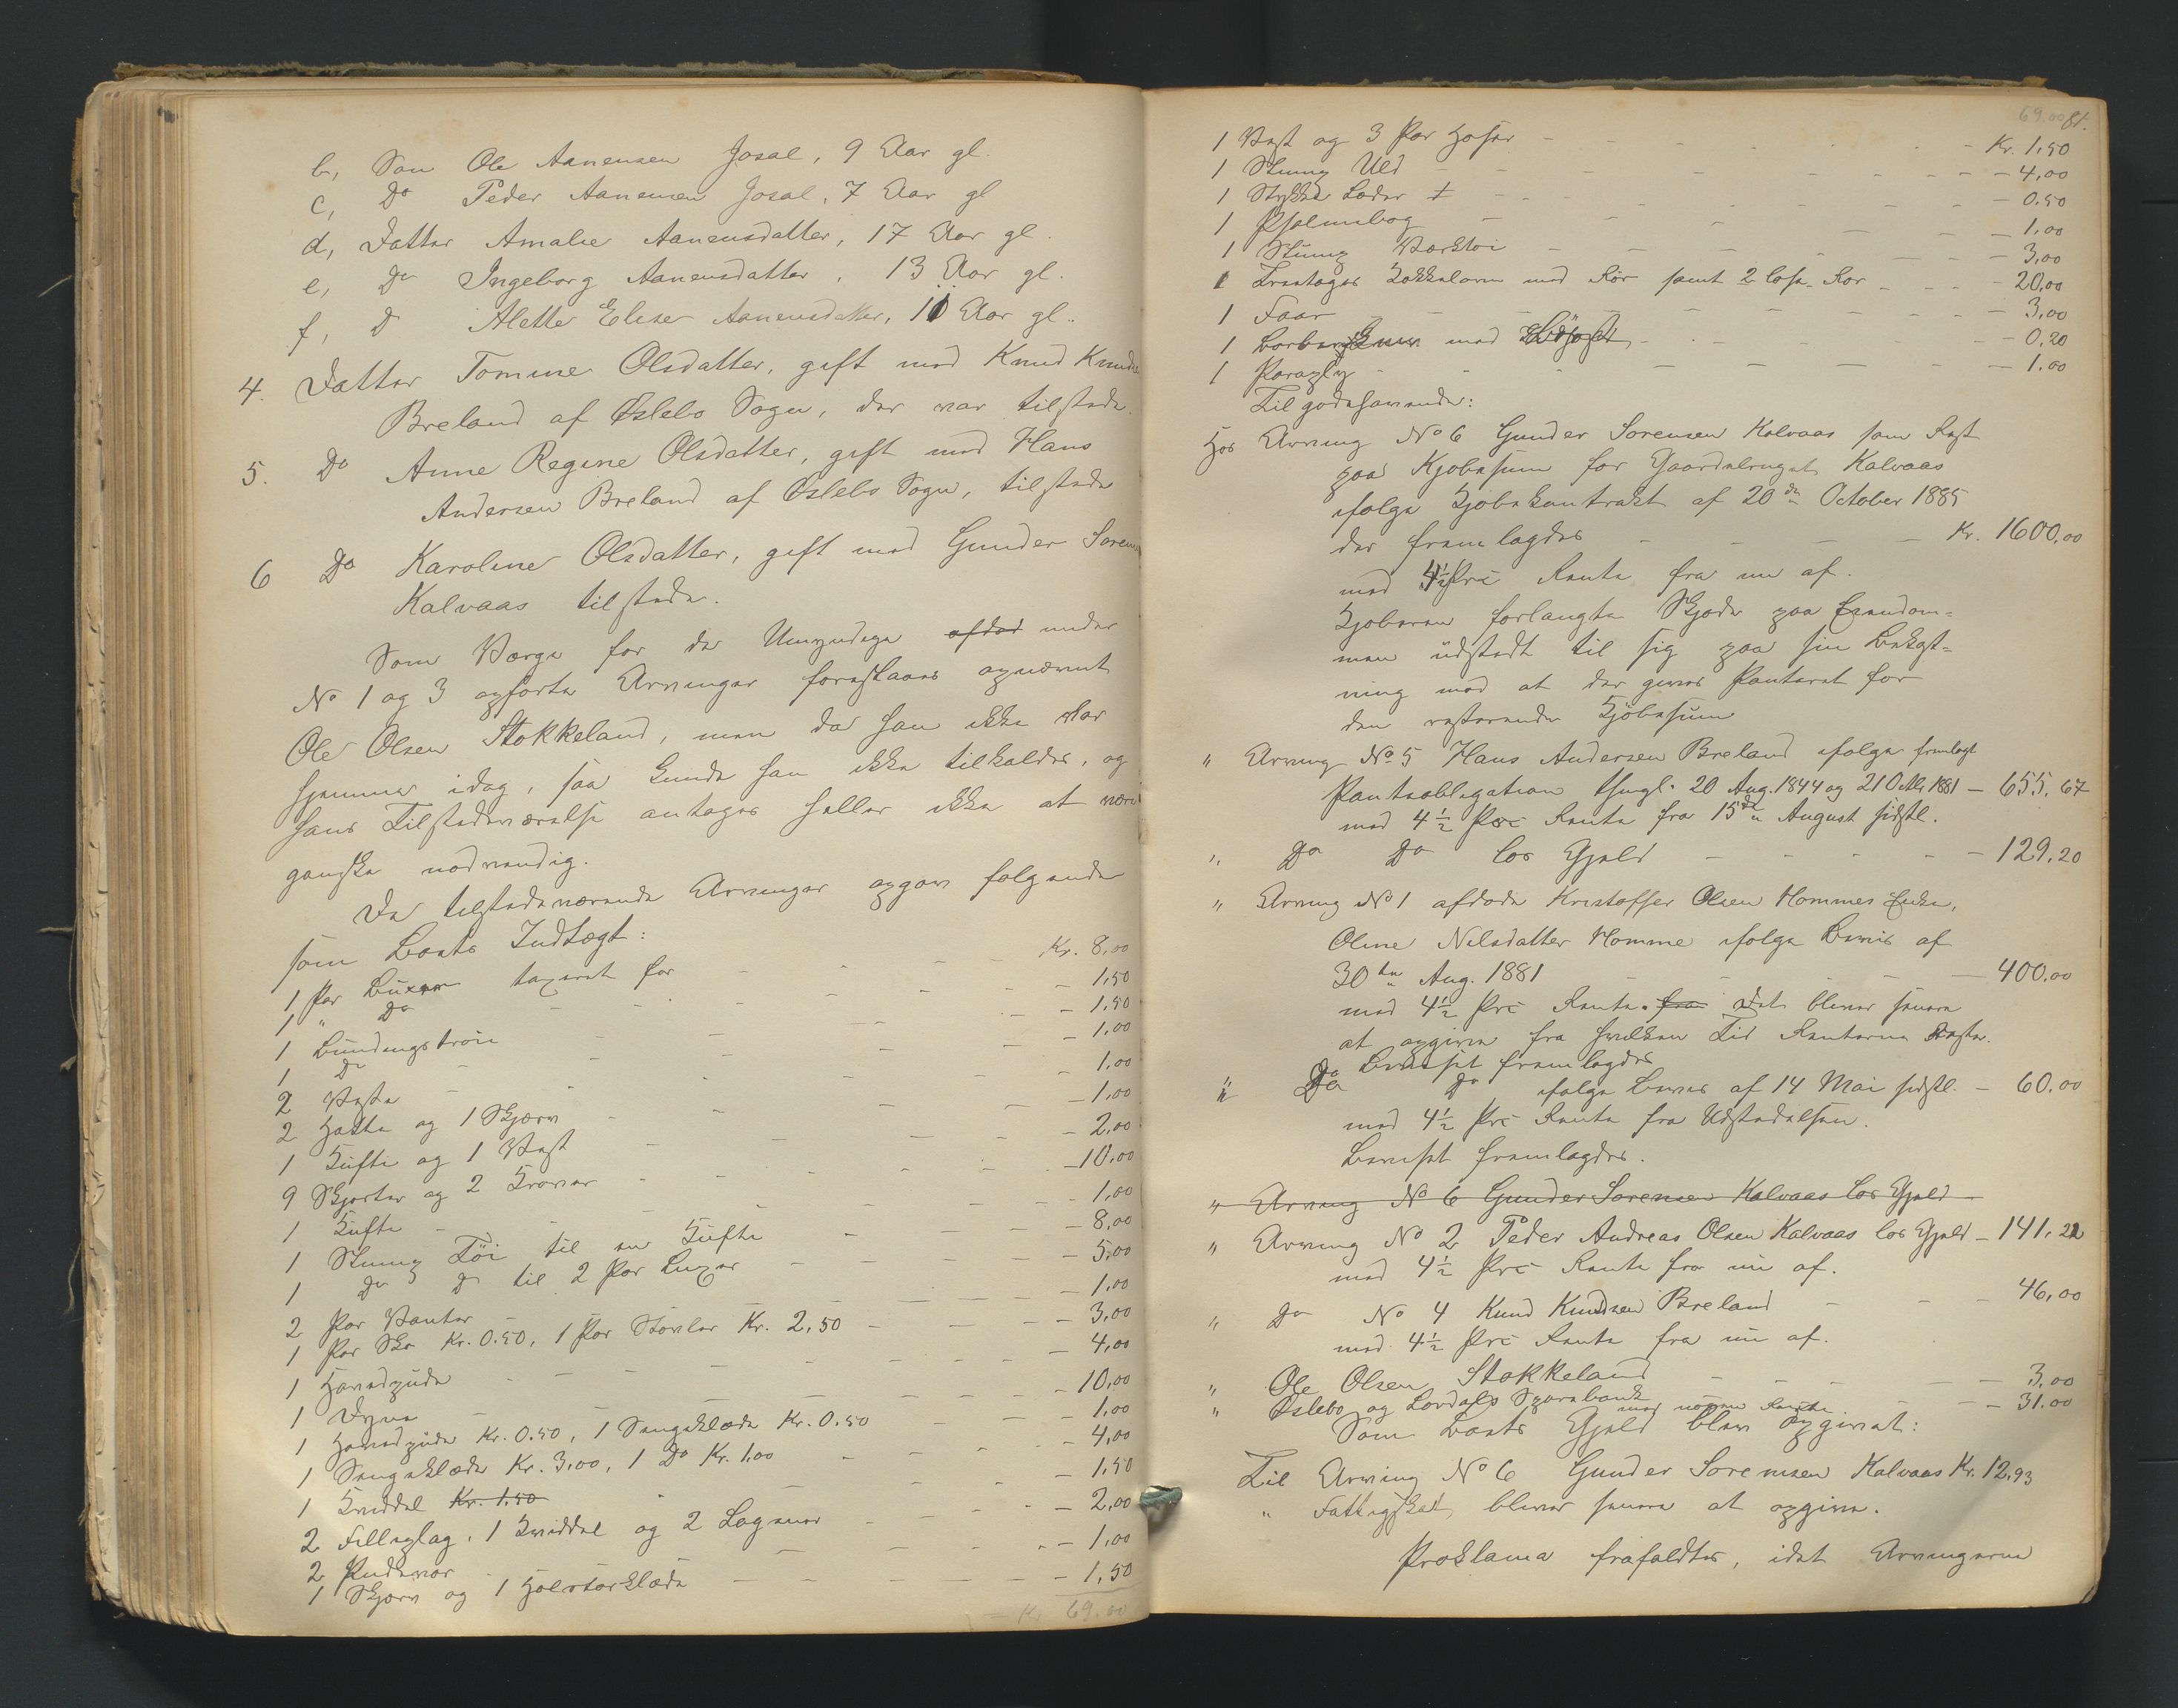 b, Søn Ole Aanensen Josal, 9 Aar gl.
c, Do Peder Aanensen Josal, 7 Aar gl
d, Datter Amalie Aanensdatter, 17 Aar gl.
e, Do Ingeborg Aanensdatter, 13 Aar gl.
f, D Alette Elise Aanensdatter, 11 Aar gl.
4. Datter Tomine Olsdatter, gift med Knud Knuds
Breland af Øslebø Sogn, der var tilstede.
5. Do Anne Regine Olsdatter, gift med Hans
Andersen Breland af Øslebø Sogn, tilstede
6 Do Karoline Olsdatter, gift med Gunder Søren
Kalvaas tilstede.
Som Værge for de Umyndige afdød under
No 1 og 3 opførte Arvinger foreslaaes opnævnt
Ole Olsen Stokkeland, men da han ikke var
hjemme idag, saa kunde han ikke tilkaldes, og
hans Tilstedeværelse antages heller ikke at være
ganske nødvendig.
De tilstedeværende Arvinger opgav følgende
som Boets Indtægt:
1 Par Buxer taxeret for Kr. 8,00
1 " Do 1,50
1 Bundingstrøie 1,50
1 Do 1,00
2 Veste 1,00
2 Hatte og 1 Skjærv 1,00
1 Kufte og 1 Vest 2,00
9 Skjorter og 2 Kraver 10,00
1 Kufte 1,00
1 Stump Tøi til en Kufte 8,00
1 Do D til 2 Par Buxer 5,00
2 Par Vanter 1,00
1 Par Sko Kr. 0.50, 1 Par Støvler Kr. 2,50 3,00
1 Hovedpude 4,00
1 Dyne 10,00
1 Hovedpude Kr. 0.50, 1 Sengeklæde Kr. 0.50 1,00
1 Sengeklæde Kr. 3,00, 1 Do Kr. 1.00 4,00
1 Kviddel Kr. 1.50 1,50
2 Felleplag, 1 Kviddel og 2 Lagener 2,00
2 Pudevor 1,00
1 Skjærv og 1 Halstørklæde 1,50
= Kr 69.00
69.00 81.
1 Vest og 3 Par Hoser Kr. 1,50
1 Stump Uld 4,00
1 Stykke Læder 0.50
1 Psalmebog 1,00
1 Stump Værktøi 3,00
1 Kokkelovn med Rør samt 2 løse Rør 20,00
1 Faar 3,00
1 med 0,20
1 Paraply 1.00
Tilgodehavende:
Hos Arving No 6 Gunder Sørensen Kalvaas som Rest
paa Kjøbesum for Gaardsbruget Kalvaas
ifølge Kjøbekontrakt af 20de October 1885
der fremlagdes Kr. 1600,00
med 4½ Prc Rente fra nu af.
Kjøberen forlangte Skjøde paa Eiendom=
men udstedt til sig paa sin Bekost=
ning mod at der gives Panteret for
den resterende Kjøbesum
" Arving No 5 Hans Andersen Breland ifølge fremlagt
Panteobligation thingl. 20 Aug. 1844 og 21 Octb 1881 – 655,67
med 4½ Prc Rente fra 15de August sidstl.
" Do Do løs Gjæld – 129,20
" Arving No 1 afdøde Kristoffer Olsen Hommes Enke,
Oline Nilsdatter Homme ifølge Bevis af
30te Aug. 1881 – 400,00
med 4½ Prc Rente. fra Det bliver senere
at opgive fra hvilken Tid Renterne rester.
Beviset fremlagdes
" Do Do ifølge Bevis af 14 Mai sidstl. – 60.00
med 4½ Prc Rente fra Udstedelsen.
Beviset fremlagdes.
" Arving No 6 Gunder Sørensen Kalvaas løs Gjæld –
" Arving No 2 Peder Andreas Olsen Kalvaas løs Gjæld – 141,22
med 4½ Prc Rente fra nu af.
" Do No 4 Knud Knudsen Breland 46,00
med 4½ Prc Rente fra nu af.
" Ole Olsen Stokkeland 3,00
" Øslebø og Løvdals Sparebank med Rente 31.00
Som Boets Gjæld blev opgivet:
Til Arving No 6 Gunder Sørensen Kalvaas Kr. 12,93
" Fattigskat bliver senere at opgive.
Proklama frafaldtes, idet Arvingerne